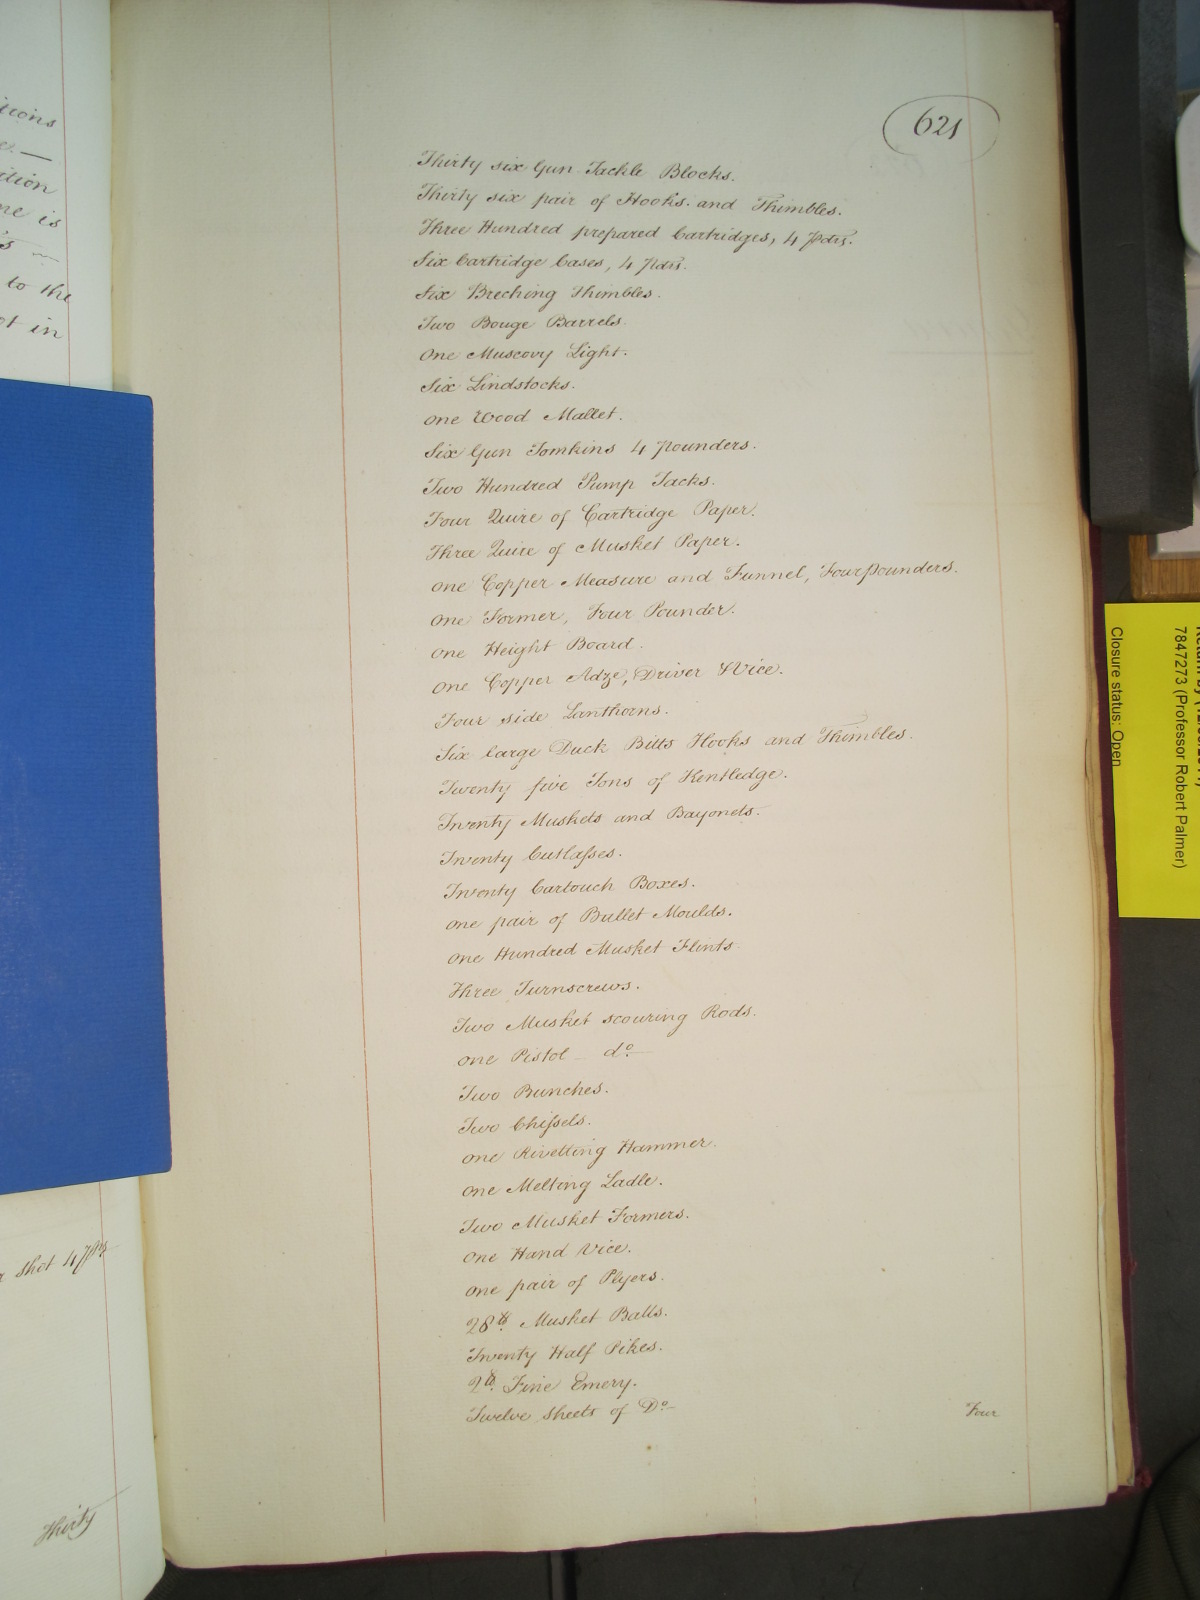 itions
ition
ne is
to the
ot in
shot 4 Pdrs
Thirty
621
Thirty six Gun Tackle Blocks.
Thirty six pair of Hooks. and Thimbles.
Three Hundred prepared Cartridges, 4 Pdrs.
Six Cartridge Cases, 4 Pdrs.
Six Breching Thimbles.
Two Bouge Barrels.
One Muscovy Light.
Six Lindstocks.
One Wood Mallet.
Six Gun Tomkins 4 Pounders.
Two Hundred Pump Tacks.
Four Quire of Cartridge Paper.
Three Quire of Musket Paper.
One Copper Measure and Funnel, Four Pounders.
One Former, Four Pounder.
One Height Board.
One Copper Adze, Driver & Vice.
Four side Lanthorns.
Six large Duck Bills Hooks and Thimbles.
Twenty five Tons of Kentledge.
Twenty Muskets and Bayonets.
Twenty Cutlaſses.
Twenty Cartouch Boxes.
One pair of Bullet Moulds.
One Hundred Musket Flints.
Three Turnscrews.
Two Musket scouring Rods.
One Pistol – do.
Two Bunches.
Two Chiſsels.
One Rivetting Hammer.
One Melting Ladle.
Two Musket Formers.
One Hand Vice.
One pair of Plyers.
28 lb. Musket Balls.
Twenty Half Pikes.
2 lb. Fine Emery.
Twelve sheets of Do.
Four
7847273 (Professor Robert Palmer)
Closure status: Open